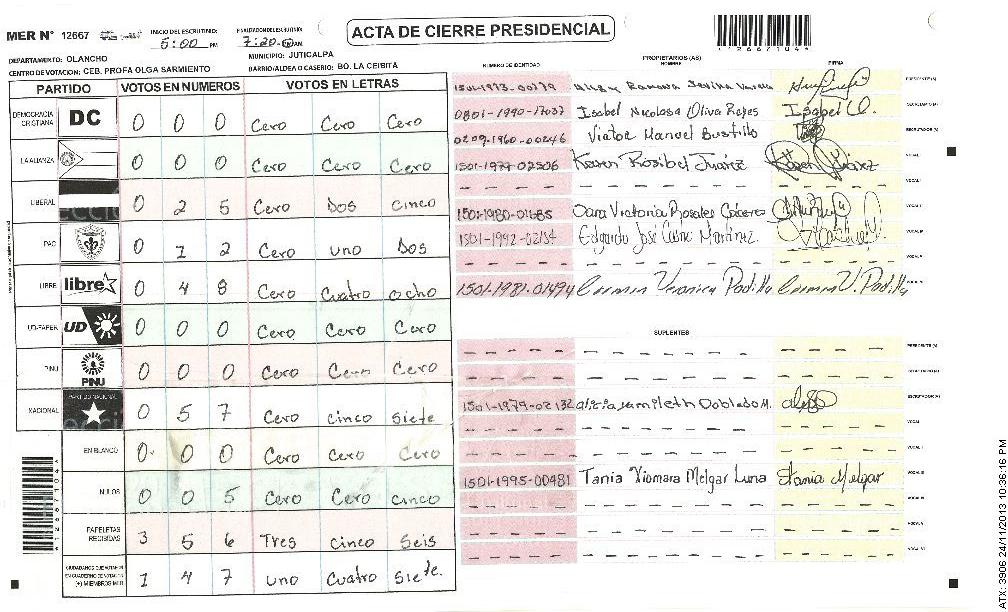 MER N° 12667
INICIO DEL ESCRUTINIO:
5:00 PM
FINALIZACION DEL ESCRUTINIO:
7:20 PM AM
ACTA DE CIERRE PRESIDENCIAL
DEPARTAMENTO: OLANCHO
MUNICIPIO: JUTICALPA
CENTRO DE VOTACION: CEB. PROFA OLGA SARMIENTO
BARRIO/ALDEA O CASERIO: BO. LA CEIBITA
PARTIDO VOTOS EN NUMEROS VOTOS EN LETRAS
DEMOCRACIA CRISTIANA DC 0 0 0 Cero Cero Cero
LA ALIANZA 0 0 0 Cero Cero Cero
LIBERAL 0 2 5 Cero Dos cinco
PAC 0 1 2 Cero uno Dos
LIBRE libre 0 4 8 Cero Cuatro ocho
UD-FAPER UD 0 0 0 Cero Cero Cero
PINU PINU 0 0 0 Cero Cero Cero
NACIONAL PARTIDO NACIONAL 0 5 7 Cero cinco Siete
EN BLANCO 0 0 0 Cero Cero Cero
NULOS 0 0 5 Cero Cero cinco
PAPELETAS RECIBIDAS 3 5 6 Tres cinco Seis
CIUDADANOS QUE VOTARON EN CUADERNO DE VOTACION (+) MIEMBROS MER 1 4 7 uno Cuatro Siete.
NUMERO DE IDENTIDAD
PROPIETARIOS (AS)
NOMBRE
FIRMA
1501-1973-00179 PRESIDENTE (A)
0801-1990-17037 Isabel Nicolasa Oliva Reyes Isabel O. SECRETARIO (A)
0209-1960-00246 Victor Manuel Bustillo ESCRUTADOR (A)
1501-1977-02506 Karen Rosibel Juárez Karen Juárez VOCAL I
1501-1980-01685 Sara Victoria Rosales Cáceres
1501-1992-02134 Edgardo José Martínez.
1501-1981-01494 Carmen Veronica Padilla Carmen V. Padilla
SUPLENTES
PRESIDENTE (A)
SECRETARIO (A)
1501-1979-02132 alicia yamileth Doblado M. ESCRUTADOR (A)
1501-1995-00481 Tania Xiomara Melgar Luna Tania Melgar
ATX: 3906 24/11/2013 10:36:16 PM